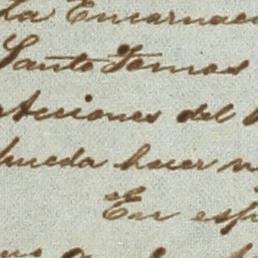 La Encarnac
Santo Tomas
acciones del
pueda hacer
En esp